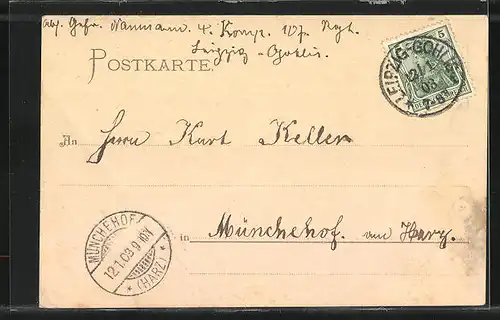 Abs. Gefr. Naumann 4. Komp. 107. Rgt.
Leipzig-Gohlis.
POSTKARTE.
5
LEIPZIG-GOHLIS
12.1.
03
7-8
An Herrn Kurt Keller
in Münchehof. am Harz.
MÜNCHEHOF
12.1.03.
* (HARZ) *